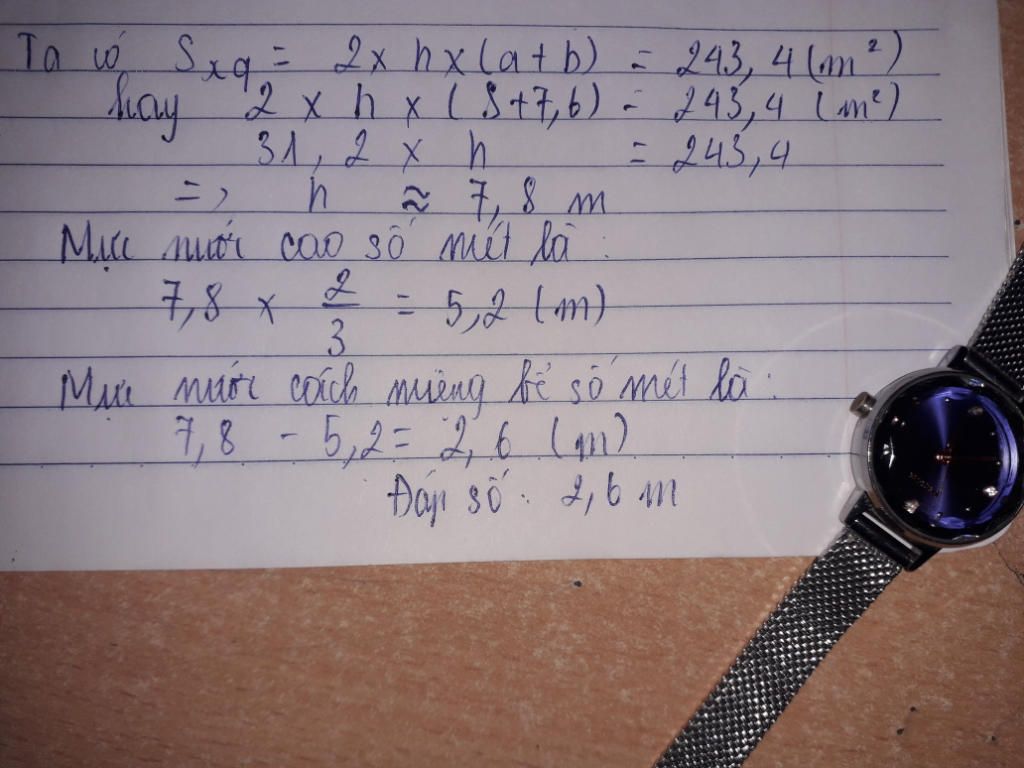 Ta có Sxq = 2 x h x (a + b) = 243,4 (m²)
hay 2 x h x (8+7,6) = 243,4 (m²)
31,2 x h = 243,4
=> h ≈ 7,8 m
Mực nước cao số mét là:
7,8 x 2/3 = 5,2 (m)
Mực nước cách miệng bể số mét là:
7,8 - 5,2 = 2,6 (m)
Đáp số: 2,6 m